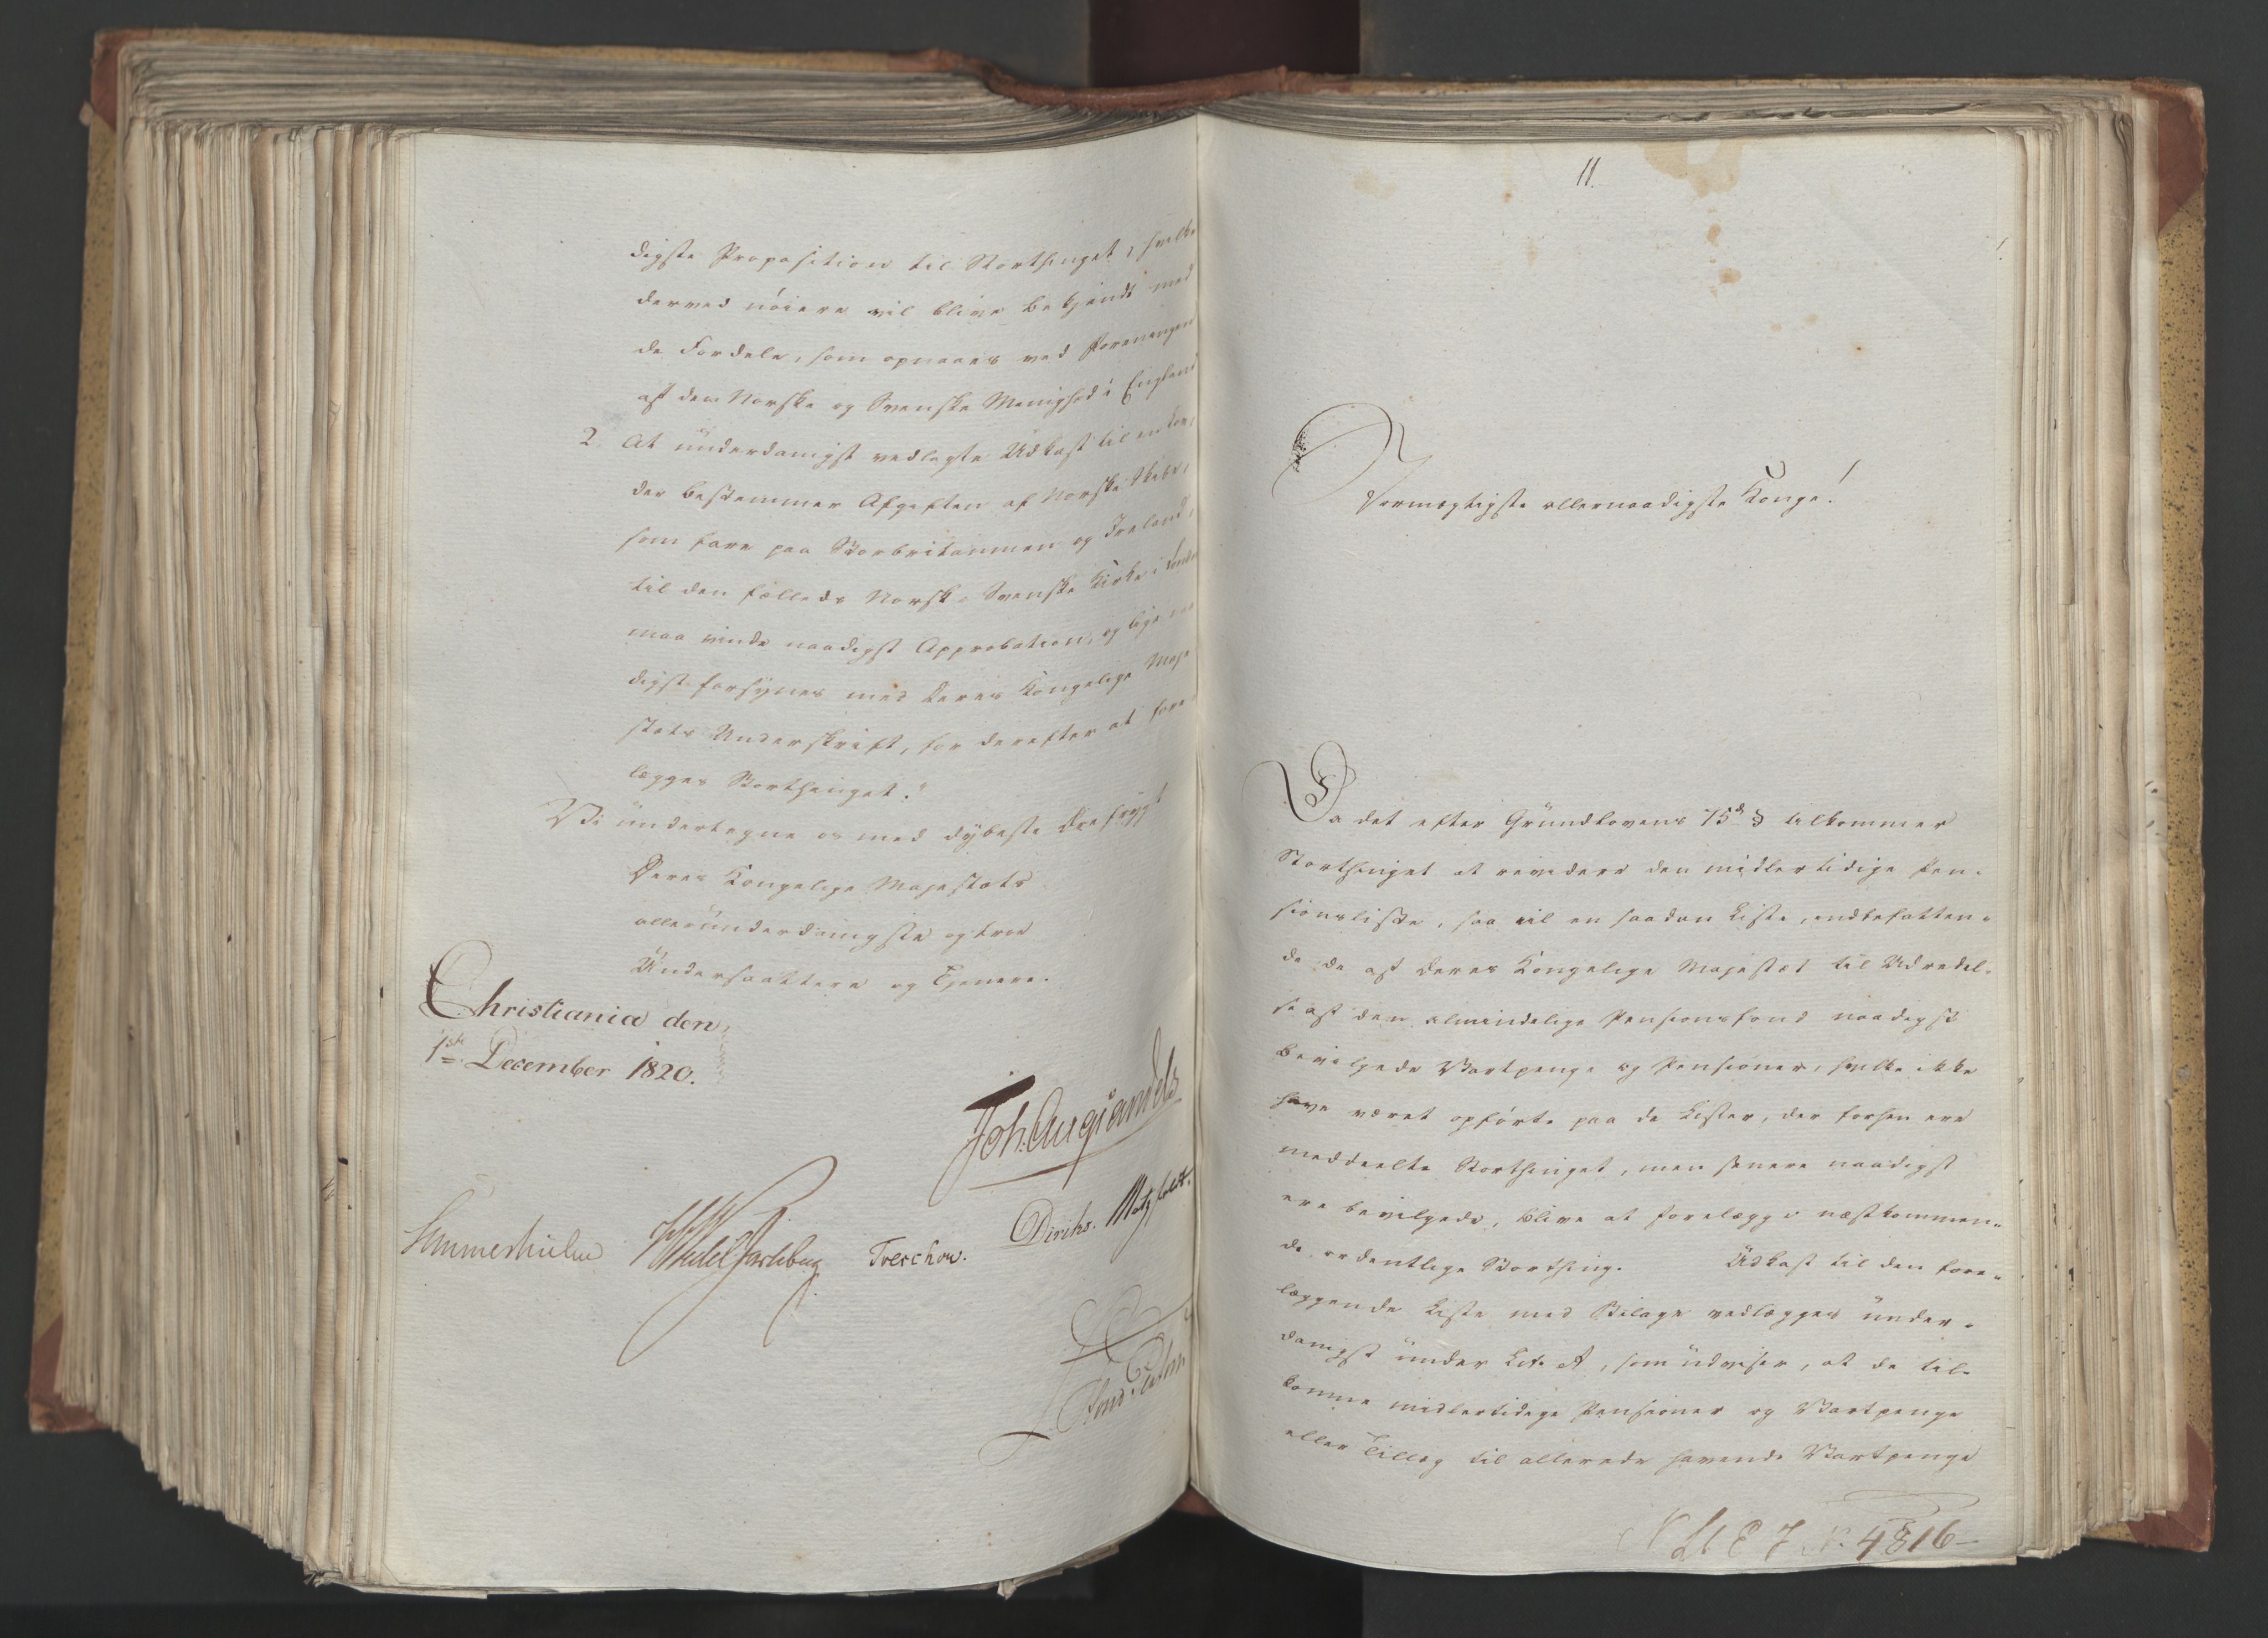 digste Proposition til Storthinget, hvilke
derved nöiere vil blive bekjendt med
de Fordele, som opnaaes ved Foreningen
af den Norske og Svenske Menighed i England
2. At ünderdanigst vedlagte Udkast til en Lov,
der bestemmer Afgiften af Norske Skibe,
som fare paa Storbritannien og Ireland,
til den fælleds Norsk-Svenske Kirke i London
maa vinde naadigst Approbation, og lige naa
digst forsynes med Deres Kongelige Maje
stæts Underskrift, for derefter at fore-
lægges Storthinget."
Vi ündertegne os med dybeste Ærefrygt
Deres Kongelige Majestæts
alleründerdanigste og troe
Undersaattere og Tjenere.
Christiania den
1ste December 1820.
Joh. Aug. Sandels
Sommerhielm Wedel Jarlsberg Treschow. Diriks. Motzfeldt.
11.
Stormægtigste allernaadigste Konge!
Da det efter Gründlovens 75d § tilkommer
Storthinget at revidere den midlertidige Pen-
sionsliste, saa vil en saadan Liste, indbefatten-
de de af Deres Kongelige Majestæt til Udredel-
se af den almindelige Pensionsfond naadigst
bevilgede Vartpenge og Pensioner, hvilke ikke
have været opförte paa de Lister, der forhen ere
meddeelte Storthinget, men senere naadigst
ere bevilgede, blive at forelægge næstkommen-
de ordentlige Storthing. Udkast til den fore-
læggende Liste med Bilage vedlægges ünder-
danigst ünder Litr. A, som üdviser, at de til-
komne midlertidige Pensioner og Vartpenge
eller Tillæg til allerede havende Vartpenge
4816